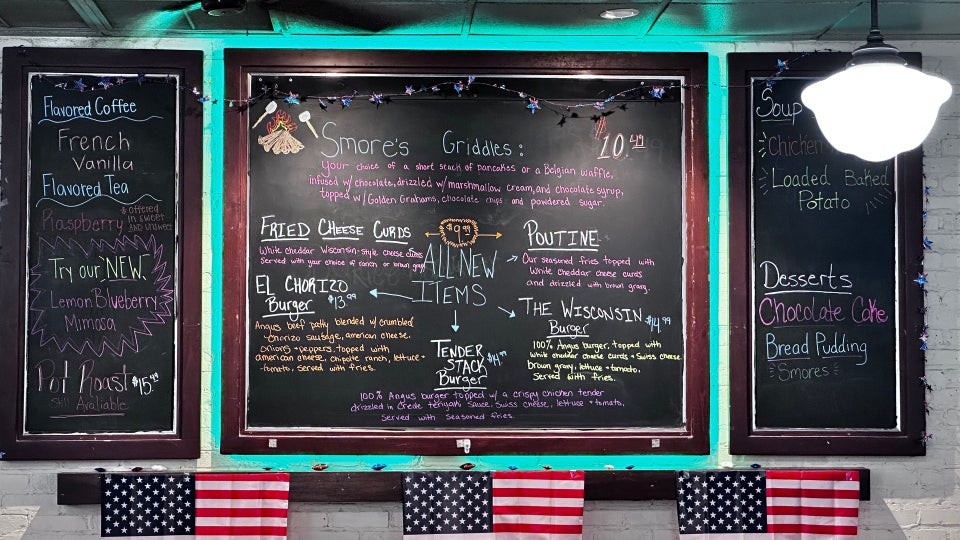 Flavored Coffee
French
Vanilla
Flavored Tea
Raspberry
*Offered
in sweet
AND UNSWEET
Try our "NEW"
Lemon Blueberry
Mimosa
Pot Roast $15.49
Still Available
Smore's Griddles: 10.49
Your choice of a short stack of pancakes or a Belgian waffle,
infused w/ chocolate, drizzled w/ marshmallow cream, and chocolate syrup,
topped w/ Golden Grahams, chocolate chips and powdered sugar.
FRIED CHEESE CURDS
White cheddar Wisconsin-style cheese curds
Served with your choice of ranch or brown gravy
$9.99
ALL NEW
ITEMS
POUTINE
Our seasoned fries topped with
white cheddar cheese curds
and drizzled with brown gravy.
EL CHORIZO
Burger $13.99
Angus beef patty blended w/ crumbled
chorizo sausage, american cheese,
onions + peppers, topped with
american cheese, chipotle ranch, lettuce +
tomato, served with fries.
TENDER $14.99
STACK
Burger
100% Angus burger topped w/ a crispy chicken tender
drizzled in teriyaki sauce, Swiss cheese, lettuce + tomato,
Served with seasoned fries.
THE WISCONSIN
Burger $14.99
100% Angus burger, topped with
white cheddar cheese curds + Swiss cheese
brown gravy, lettuce + tomato,
Served with fries.
Soup
Chicken
Loaded Baked
Potato
Desserts
Chocolate Cake
Bread Pudding
Smores